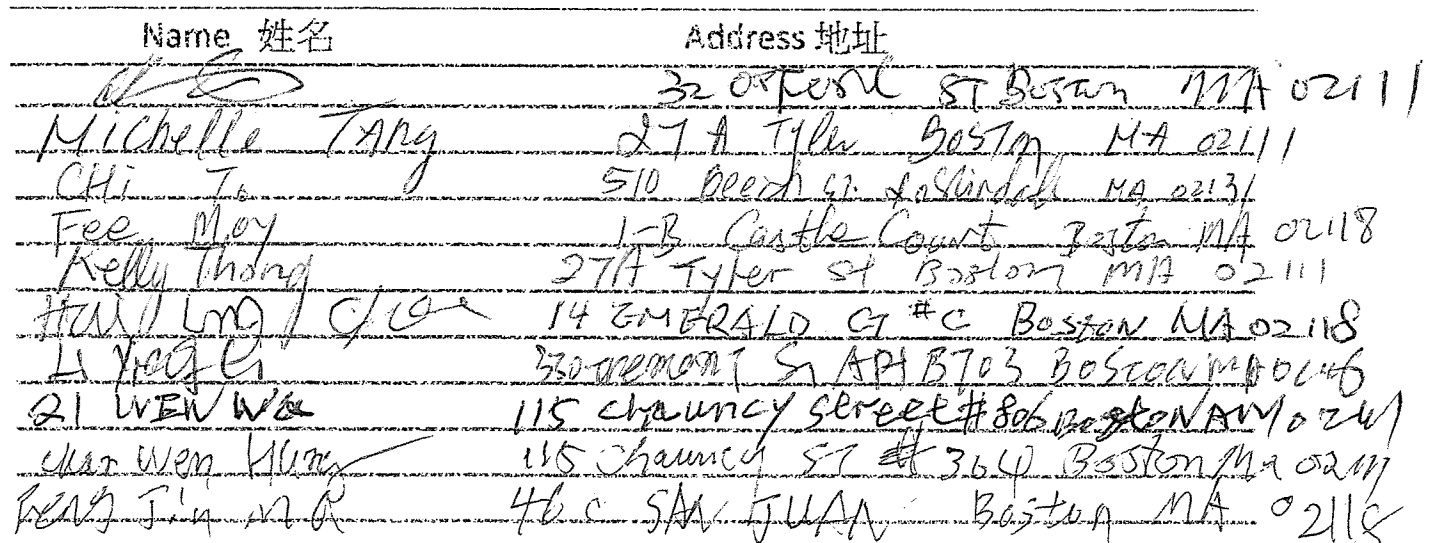 Name 姓名 Address 地址
32 Oxford ST Boston MA 02111
Michelle TAng 27 A Tyler Boston MA 02111
CHi To 510 Beech ST. Roslindale MA 02131
Fee Moy 1-B Castle Court Boston MA 02118
Kelly Thong 27A Tyler St Boston MA 02111
14 EMERALD CT #C BOSTON MA 02118
330 tremont St APt B703 Boston MA
WEN 115 chauncy street #806 Boston 
Wen 115 Chauncy ST # 304 Boston Ma
Feng Jin MA 46 C SAN JUAN Boston MA